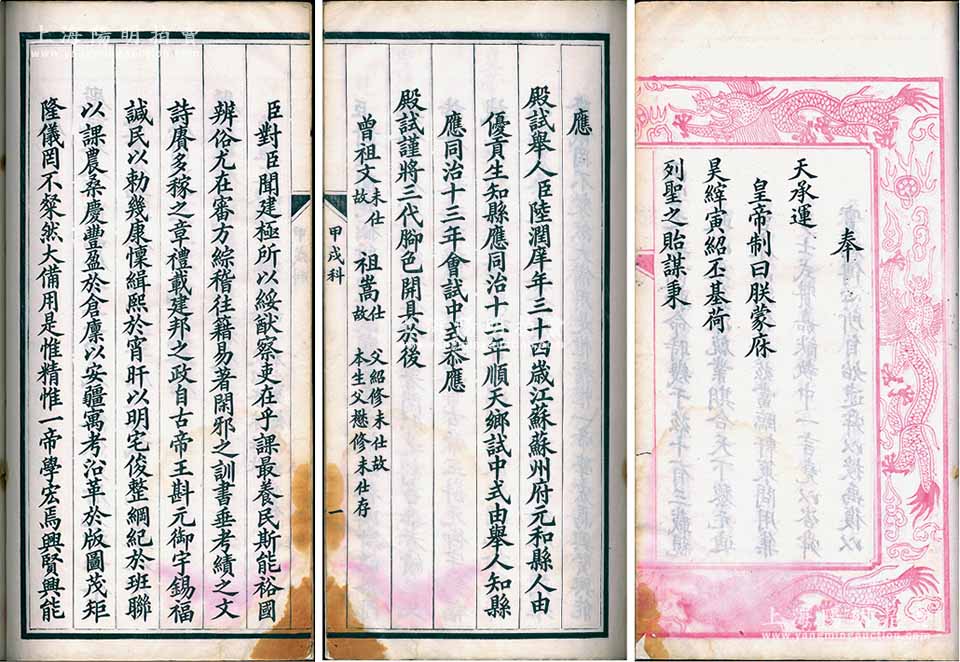 奉
天承運
皇帝制曰朕蒙庥
昊縡寅紹丕基荷
列聖之貽謀秉
應
殿試舉人臣陸潤庠年三十四歲江蘇蘇州府元和縣人由
優貢生知縣應同治十二年順天鄉試中式由舉人知縣
應同治十三年會試中式恭應
殿試謹將三代腳色開具於後
曾祖文未仕故 祖嵩仕故 父紹修未仕故 本生父懋修未仕存
甲戌科
一
臣對臣聞建極所以綏猷察吏在乎課最養民斯能裕國
辨俗尤在審方綜稽往籍易著閑邪之訓書垂考績之文
詩賡多稼之章禮載建邦之政自古帝王斟元御宇錫福
諴民以勅幾康懍緝熙於宵旰以明宅俊整綱紀於班聯
以課農桑慶豐盈於倉廩以安疆寓考沿革於版圖茂矩
隆儀罔不粲然大備用是惟精惟一帝學宏焉興賢興能
上海陽明拍賣
www.yangmingauction.com
www.yangmingauction.com